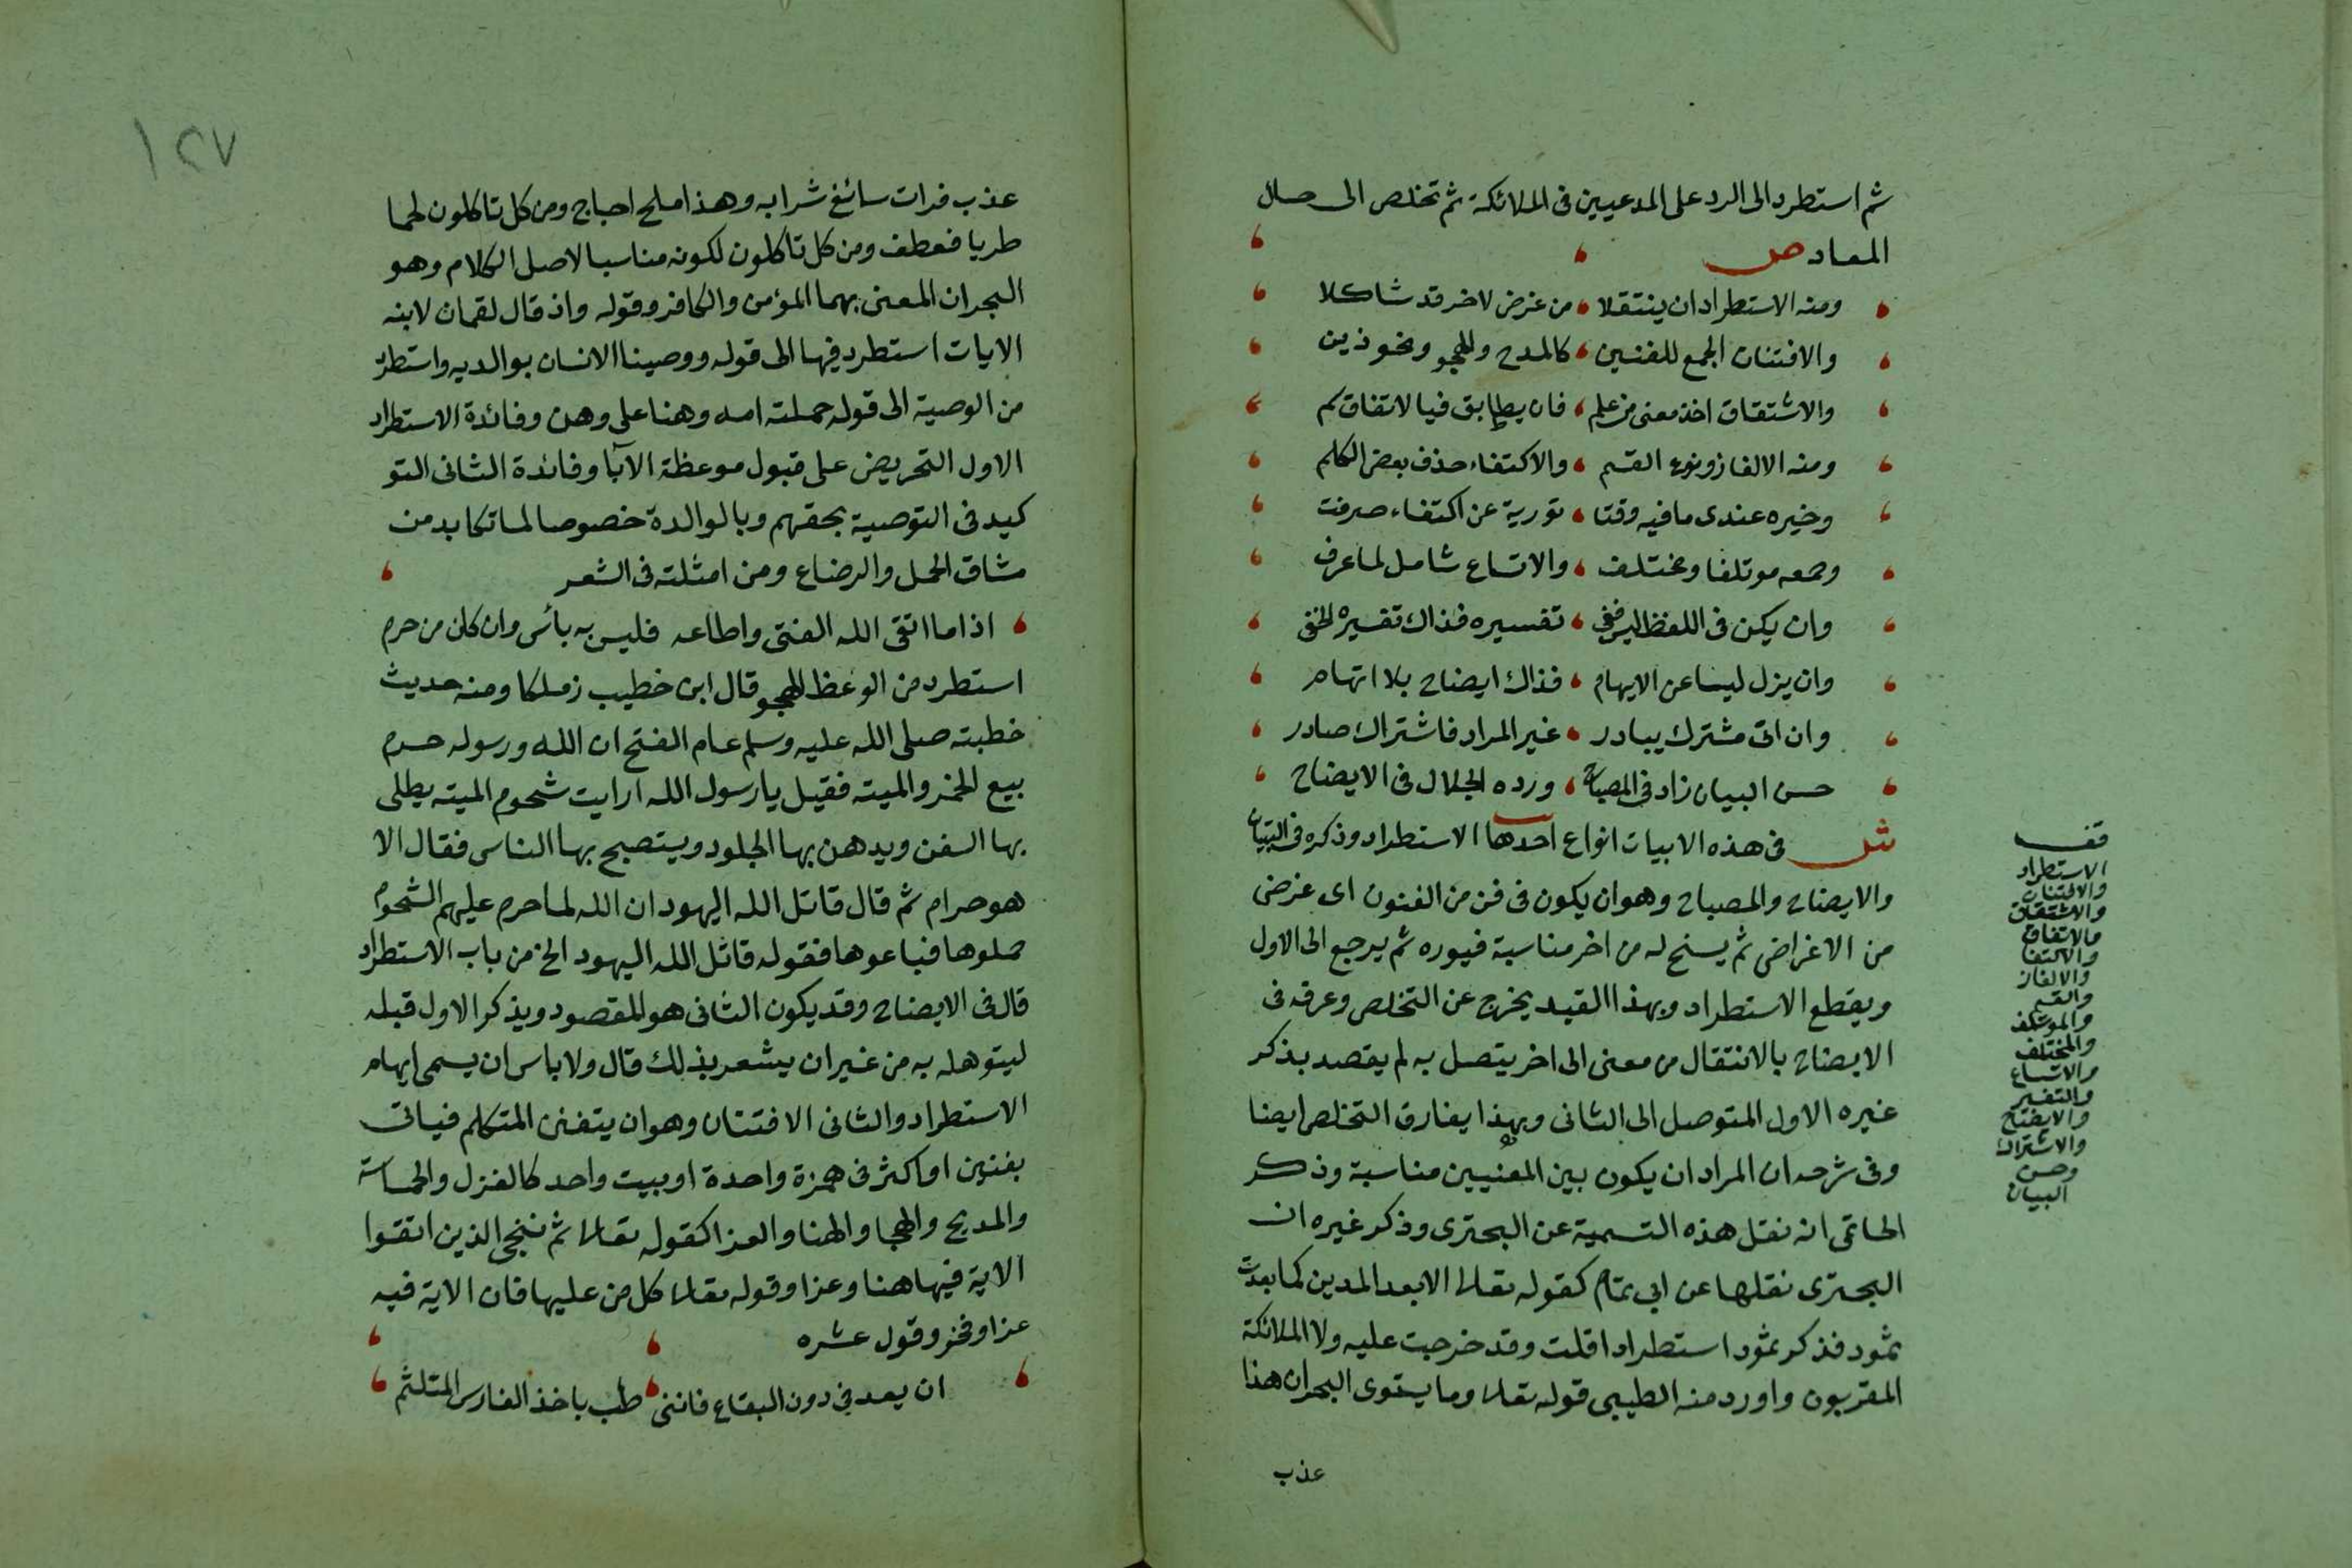 ثم استطرد الى الرد على المدعيين فى الملائكة ثم تخلص الى حال
المعاد ص
ومنه الاستطراد ان ينتقلا ، من غرض لاخر قد شاكلا
والافتنان الجمع للفنين ، كالمدح والهجو ونحو ذين
والاشتقاق اخذ معنى من علم ، فان يطابق فيا لاتفاق كم
ومنه الالغاز ونوع القسم ، والاكتفاء حذف بعض الكلم
وخيره عندى ما فيه وفتا ، تورية عن اكتفاء صرفت
وجمعه موتلفا ومختلف ، والاتساع شامل لما عرف
وان يكن فى اللفظ لبس ففى ، تفسيره فذاك تفسير الخفى
وان يزل لبسا عن الايهام ، فذاك ايضاح بلا اتهام
وان اتى مشترك يبادر ، غير المراد فاشتراك صادر
حسن البيان زاد فى المصباح ، ورده الجلال فى الايضاح
ش فى هذه الابيات انواع احدها الاستطراد وذكره فى التبيان
والايضاح والمصباح وهو ان يكون فى فن من الفنون اى غرض
من الاغراض ثم يسنح له من اخر مناسبة فيورده ثم يرجع الى الاول
ويقطع الاستطراد وبهذا القيد يخرج عن التخلص وعرفه فى
الايضاح بالانتقال من معنى الى اخر يتصل به لم يقصد بذكر
غيره الاول المتوصل الى الثانى وبهذا يفارق التخلص ايضا
وفى شرحه ان المراد ان يكون بين المعنيين مناسبة وذكر
الحاتمى انه نقل هذه التسمية عن البحترى وذكر غيره ان
البحترى نقلها عن ابى تمام كقوله تعالى الا بعدا لمدين كما بعدت
ثمود فذكر ثمود استطرادا قلت وقد خرجت عليه ولا الملائكة
المقربون واورد منه الطيبى قوله تعالى وما يستوى البحران هذا
عذب
قف
الاستطراد
والافتنان
والاشتقاق
والاتفاق
والاكتفا
والالغاز
والقسم
والموتلف
والمختلف
والاتساع
والتفسير
والايضاح
والاشتراك
وحسن
البيان
١٢٧
عذب فرات سائغ شرابه وهذا ملح اجاج ومن كل تاكلون لحما
طريا فعطف ومن كل تاكلون لكونه مناسبا لاصل الكلام وهو
البحران المعنى بهما المؤمن والكافر وقوله واذ قال لقمان لابنه
الايات استطرد فيها الى قوله ووصينا الانسان بوالديه واستطرد
من الوصية الى قوله حملته امه وهنا على وهن وفائدة الاستطراد
الاول التحريض على قبول موعظة الآبا وفائدة الثانى التو
كيد فى التوصية بحقهم وبالوالدة خصوصا لما تكابد من
مشاق الحمل والرضاع ومن امثلته فى الشعر
اذا ما اتقى الله الفتى واطاعه فليس به بأس وان كان من جرم
استطرد من الوعظ للهجو قال ابن خطيب زملكا ومنه حديث
خطبته صلى الله عليه وسلم عام الفتح ان الله ورسوله حرم
بيع الخمر والميته فقيل يا رسول الله ارايت شحوم الميته يطلى
بها السفن ويدهن بها الجلود ويستصبح بها الناس فقال الا
هو حرام ثم قال قاتل الله اليهود ان الله لما حرم عليهم الشحوم
جملوها فباعوها فقوله قاتل الله اليهود الخ من باب الاستطراد
قال فى الايضاح وقد يكون الثانى هو المقصود ويذكر الاول قبله
ليتوصل به من غير ان يشعر بذلك قال ولا باس ان يسمى ايهام
الاستطراد والثانى الافتنان وهو ان يتفنن المتكلم فياتى
بفنين او اكثر فى همزة واحدة او بيت واحد كالغزل والحماسة
والمديح والهجا والهنا والعزا كقوله تعالى ثم ننجى الذين اتقوا
الاية فيها هنا وعزا وقوله تعالى كل من عليها فان الاية فيه
عزا وفخر وقول عنتره
ان يعد فى دون البقاع فاننى ، طب باخذ الفارس المتلثم